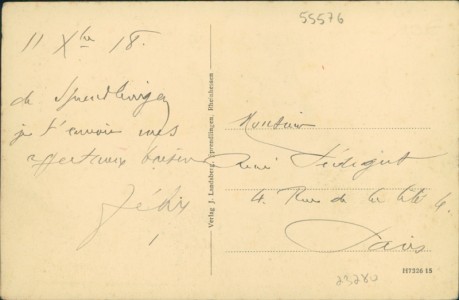 55576
11 Xbre 18.
de Sprendlingen
je t'envoie mes
affectueux baisers
Félix
Verlag J. Landsberg, Sprendlingen, Rheinhessen
Monsieur
René
4. Rue de la Cité 4.
Paris
29,280